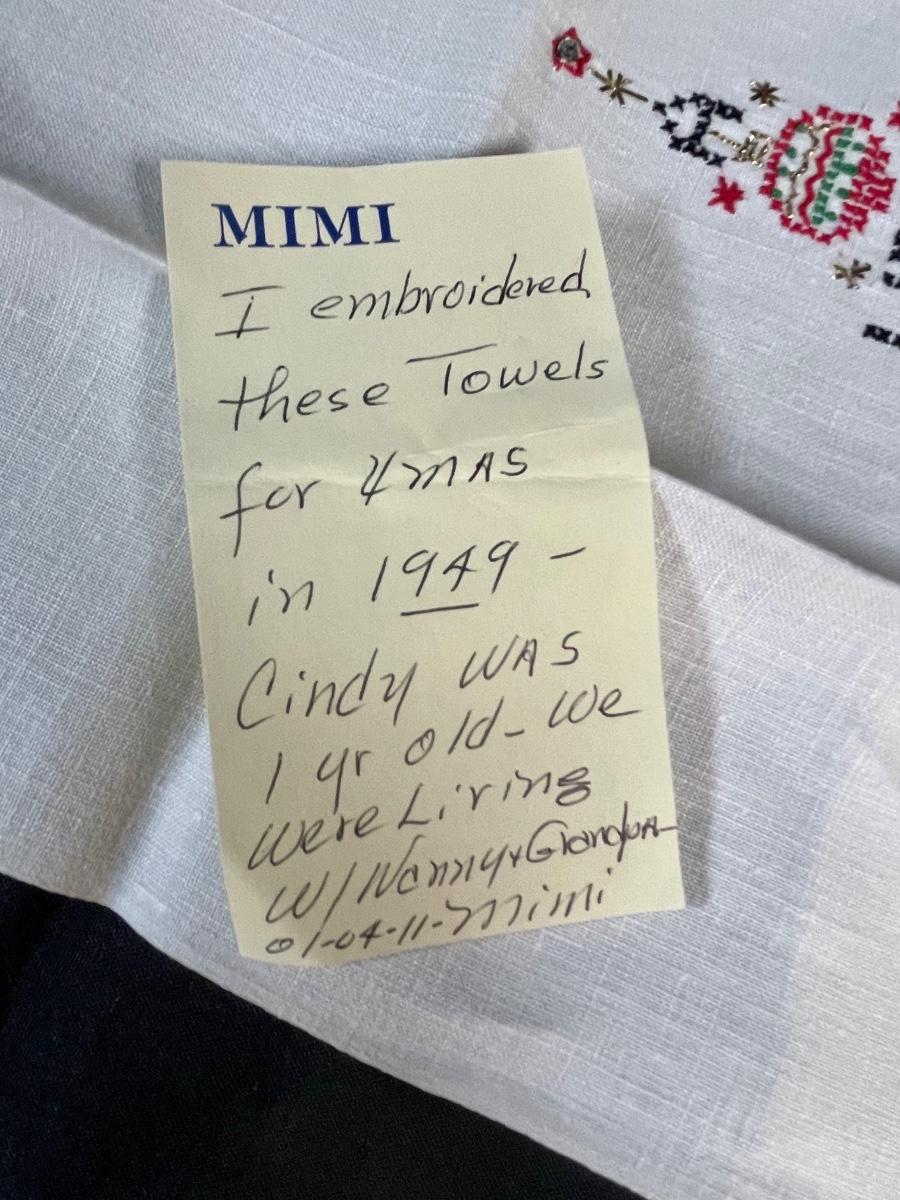 MIMI
I embroidered
these Towels
for XMAS
in 1949 -
Cindy WAS
1 yr old - We
were Living
W/ Nanny & Grandpa -
01-04-11 - Mimi